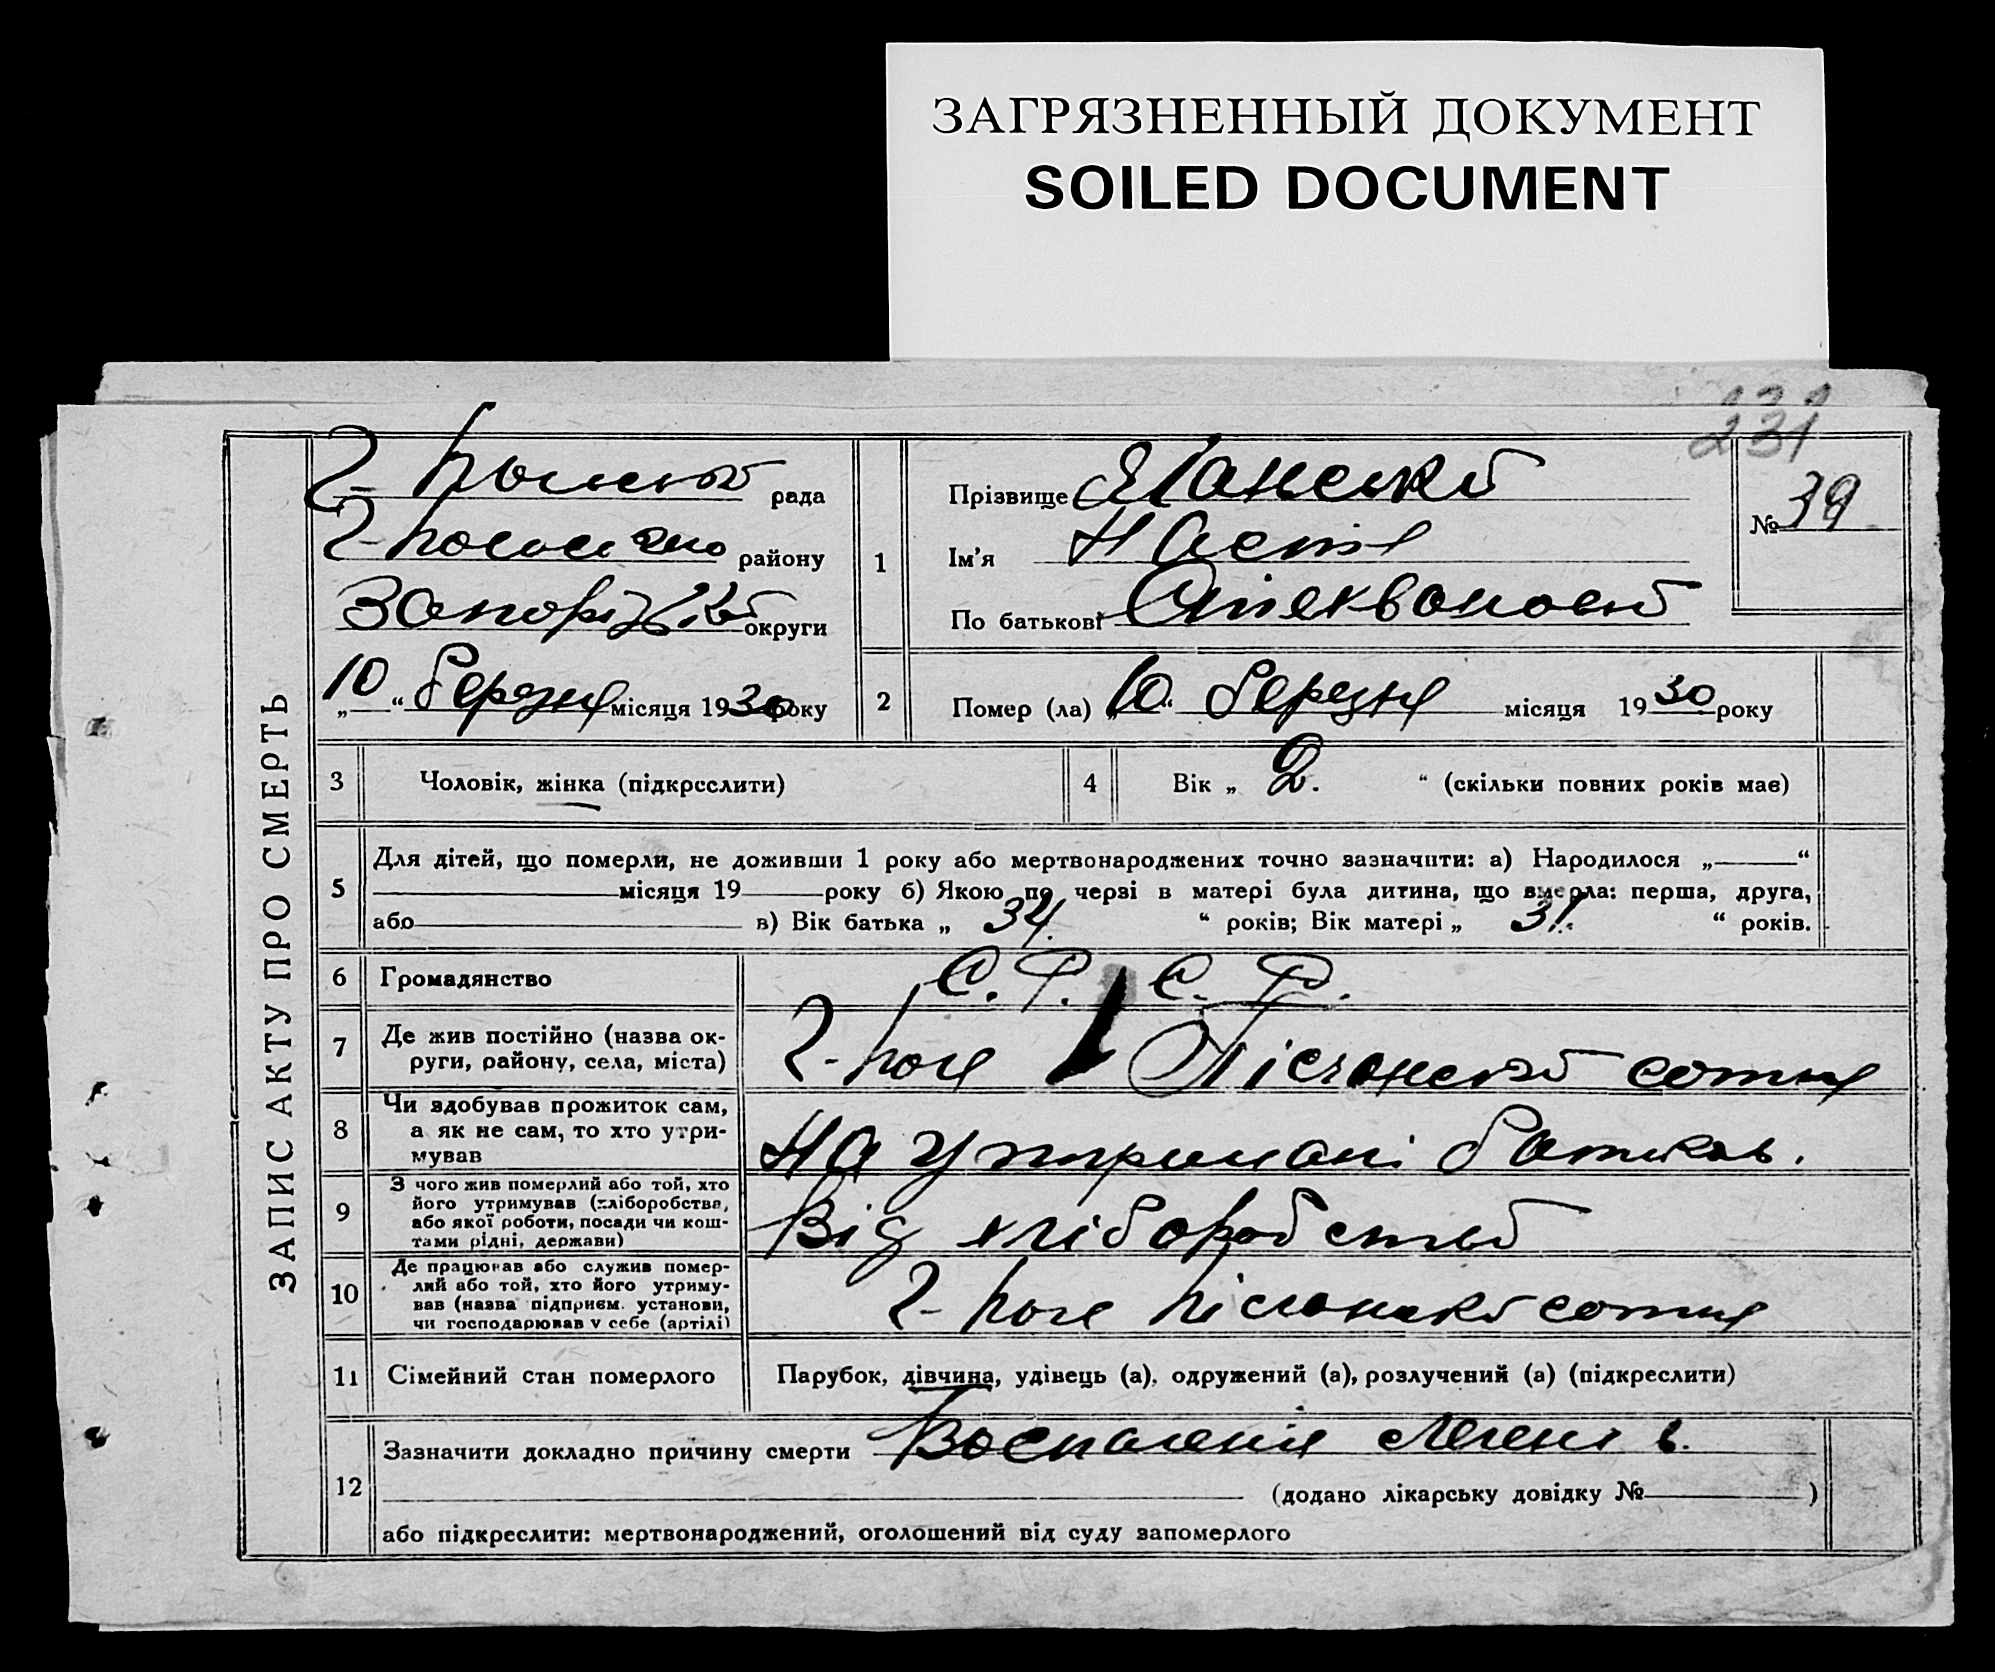 ЗАГРЯЗНЕННЫЙ ДОКУМЕНТ
SOILED DOCUMENT
231
ЗАПИС АКТУ ПРО СМЕРТЬ
рада
району
округи
10 “ березня місяця 1930 року
1
Прізвище
Ім'я Настя
По батькові
№ 39
2
Помер (ла) „ 10 “ березня місяця 1930 року
3
Чоловік, жінка (підкреслити)
4
Вік „ 2. “ (скільки повних років має)
5
Для дітей, що померли, не доживши 1 року або мертвонароджених точно зазначити: а) Народилося „ “
місяця 19 року б) Якою по черзі в матері була дитина, що вмерла: перша, друга,
або в) Вік батька „ 34. “ років; Вік матері „ 31. “ років.
6
Громадянство
С. Р. С. Р.
7
Де жив постійно (назва ок-
руги, району, села, міста)
Пісчанскої сотня
8
Чи здобував прожиток сам,
а як не сам, то хто утри-
мував
На утримані батьків.
9
З чого жив померлий або той, хто
його утримував (хліборобства,
або якої роботи, посади чи кош-
тами рідні, держави)
Від хліборобства
10
Де працював або служив помер-
лий або той, хто його утриму-
вав (назва підприєм. установи,
чи господарював у себе (артілі)
сотня
11
Сімейний стан померлого
Парубок, дівчина, удівець (а), одружений (а), розлучений (а) (підкреслити)
12
Зазначити докладно причину смерти Воспаленія легенів.
(додано лікарську довідку № )
або підкреслити: мертвонароджений, оголошений від суду запомерлого